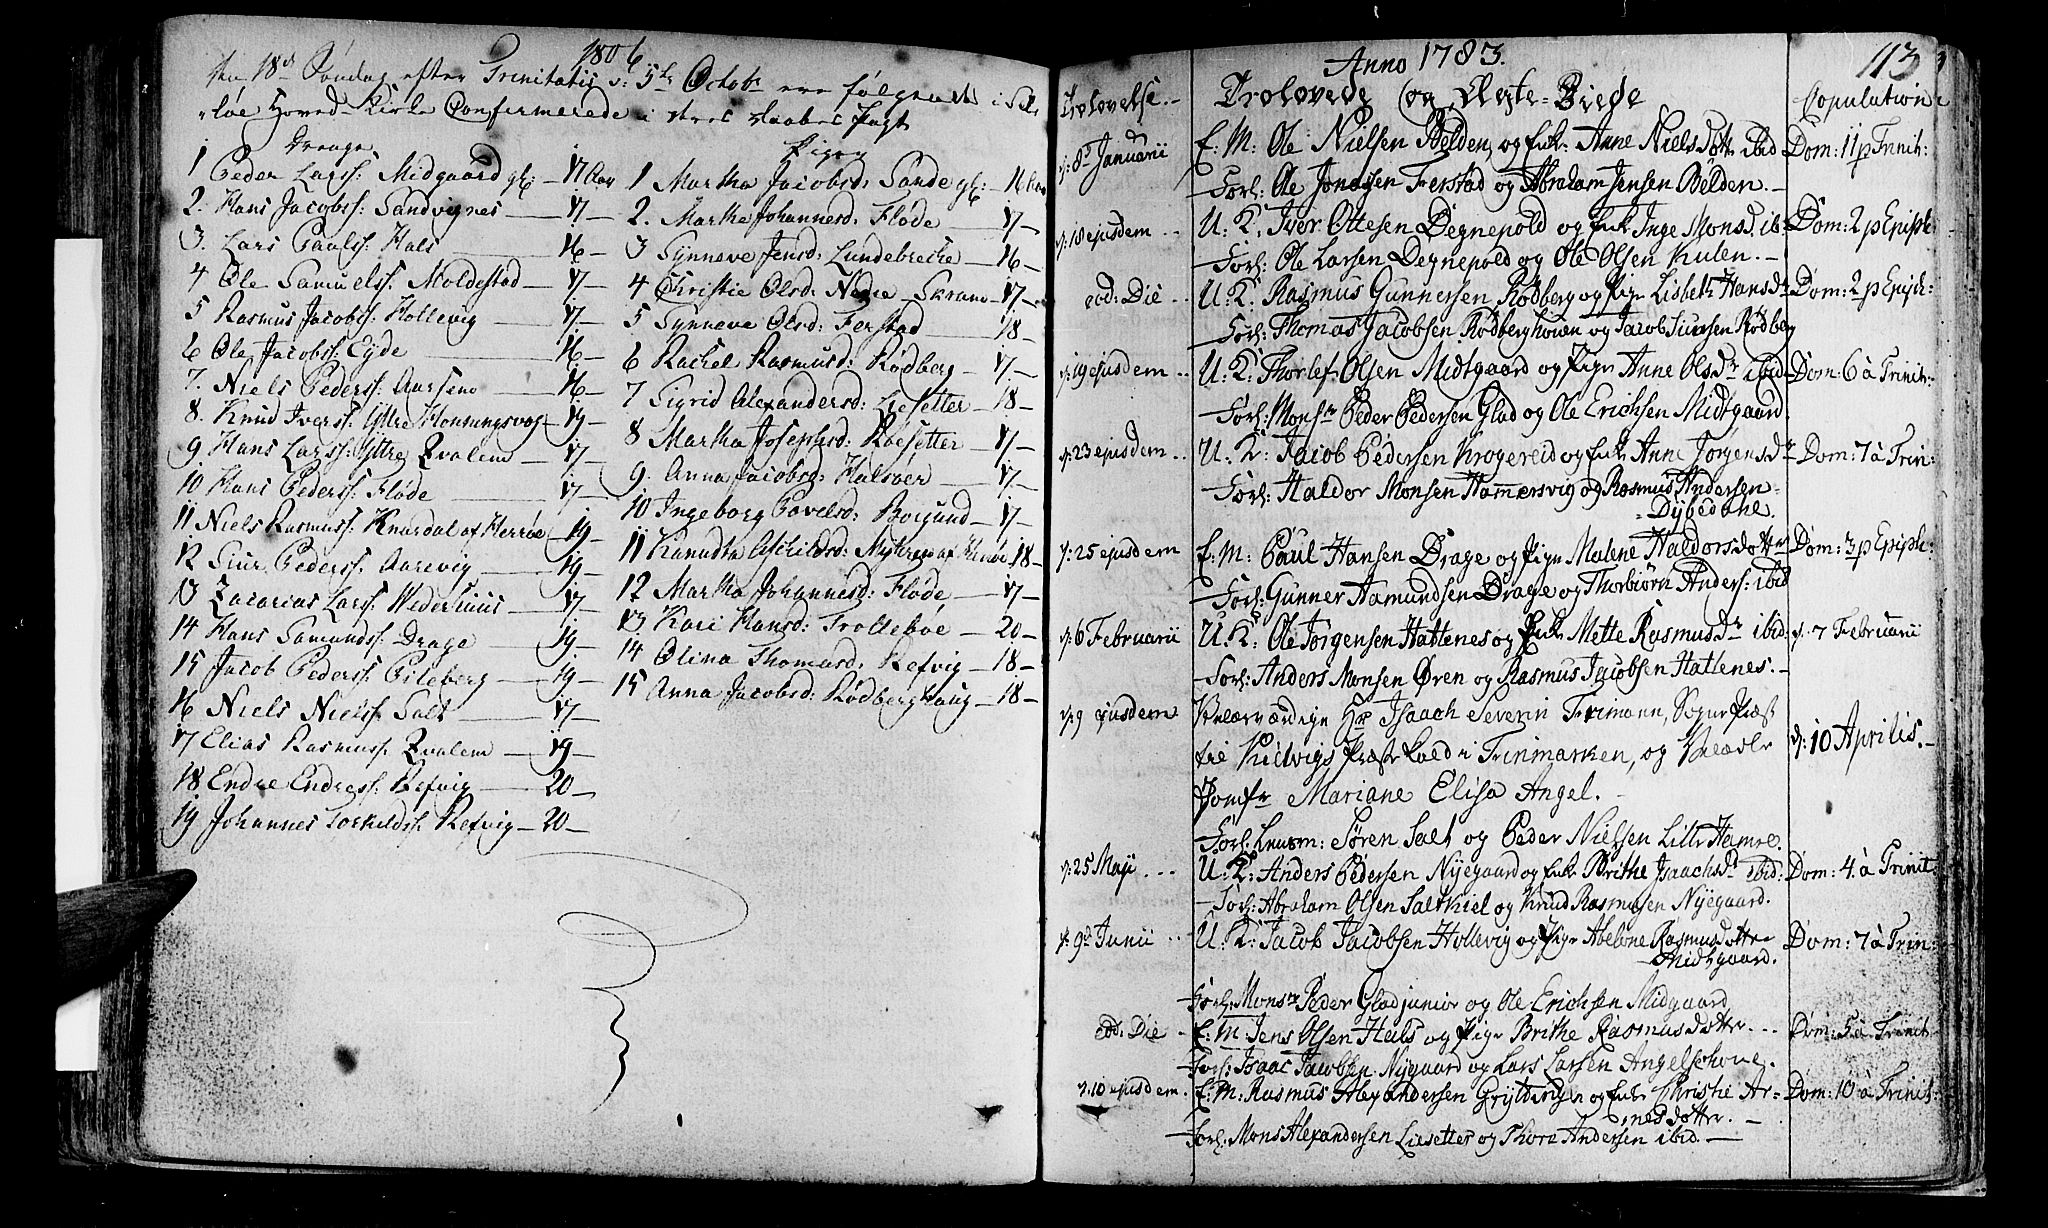 1806
den 18d Søndag efter Trinitatis s: 5te Octobr ere følgende i Sel-
løe Hoved-Kirke Confirmerede i deres Daabes Pagt
Drenge
1 Peder Larss: Midgaard gl: — 17 Aar
2. Hans Jacobss: Sandvignes — 17 —
3. Lars Paulss: Hals — 16 —
4 Ole Samuelss: Moldestad — 17 —
5 Rasmus Jacobss: Hollevig — 17 —
6 Ole Jacobss: Eyde — 16 —
7. Niels Pederss: Aarseno — 16 —
8. Knud Iverss: Yttre Honningsvog — 19 —
9 Hans Larss: Yttre Qvalem — 17 —
10 Hans Pederss: Fløde — 17 —
11 Niels Rasmuss: Knardal af Herrøe — 19 —
12 Siur Pederss: Aarevig — 19 —
13 Zacarias Larss: Wederhuus — 17 —
14 Hans Samunds: Drage — 19 —
15 Jacob Pederss: Pileberg — 19 —
16 Niels Nielss: Salt — 17 —
17 Elias Rasmuss: Qvalem — 19 —
18 Endre Endress: Refvig — 20 —
19 Johannes Torkilds: Refvig — 20 —
Piger
1 Martha Jacobsd: Sande gl: — 16 Aar
2. Marthe Johannesd: Fløde — 17 —
3 Synneve Jensd: Lundebrecke — 16 —
4 Christie Olsd: Nedre Skram — 17 —
5 Synneve Olsd: Ferstad — 18 —
6 Rachel Rasmusd: Rødberg — 17 —
7 Sigrid Alexandersd: Liesetter — 18 —
8 Martha Josephsd: Roesetter — 17 —
9. Anna Jacobsd: Halsøer — 17 —
10 Ingeborg Povelsd: Borgund — 17 —
11 Kanudta Eschildsd: af Herrøe 18 —
12 Martha Johannesd: Fløde — 17 —
13 Kari Hansd: Trolleboe — 20 —
14 Olina Thomasd: Refvig — 18 —
15 Anna Jacobsd: Rødberghoug — 18 —
113
Anno 1783.
Trolovelse. — Trolovede og Ægte-Viede Copulation
d: 8d Januarii E. M: Ole Nielsen Belden, og Enke Anne Nielsdotter ibid Dom: 11 p Trinit:
Forl: Ole Jonassen Ferstad og Abraham Jensen Belden. —
d: 18 ejusdem .. U. K. Iver Ottesen Degnepold og Enke Inge Monsd. ib: Dom: 2 p Epiph:
Forl: Ole Larsen Degnepold og Ole Olsen Kulen. —
eod: Die .. U. K. Rasmus Gunnersen Rødberg og Pige Lisbeth Hansdr Dom: 2 p Epiph:
Forl: Thomas Jacobsen Rødberghouen og Jacob Siursen Rødberg
d: 19 ejusdem .. U. K: Thorlef Olsen Midtgaard og Pige Anne Olsdr ibid Dom: 6 à Trinit:
Forl: Monsr Peder Pedersen Glad og Ole Erichsen Midtgaard
d: 23 ejusdem .. U. K: Jacob Pedersen Krogereid og Enke Anne Jørgensdr Dom: 7 à Trin:
Forl: Haldor Monsen Hammersvig og Rasmus Andersen
Dybedahl.
d: 25 ejusdem E: M: Paul Hansen Drage og Pige Malene Haldorsdotter Dom: 3 p Epiph:
Forl: Gunner Aamundsen Drage og Thorbiørn Anders: ibid
d: 6 Februarii U. K: Ole Jørgensen Hattenes og Enke Mette Rasmusdr ibid: d. 7 Februarii
Forl: Anders Monsen Øren og Rasmus Jacobsen Hattenes. —
d: 9 ejusdem Velærværdige Hr Isaach Severin Frimann, Sogne Præst
til Kielvigs Præste Kald i Finmarken, og Velædle d: 10 Aprilis. —
Jomfr Mariane Elisa Angel. —
Forl: Lensm: Søren Salt og Peder Nielsen Lille Hamre.
d: 25 Maji ... U. K: Anders Pedersen Nyegaard og Enke Brithe Isaachsdr ibid: Dom: 4. à Trinit.
Forl: Abraham Olsen Saltkiel og Knud Rasmusen Nyegaard.
d: 9d Junii .. U. K: Jacob Jacobsen Hollevig og Pige Abelone Rasmusdotter Dom: 7 à Trin:
Midtgaard.
Forl: Monsr Peder Glad junior og Ole Erichsen Midgaard
eod: Die - E: M. Jens Olsen Hals og Pige Brithe Rasmusdotter ... Dom: 5 à Trinit:
Forl: Isaac Jacobsen Nygaard og Lars Larsen Angelshove.
d: 10 ejusdem. E: M: Rasmus Alexandersen Gryting og Enke Christie Ar- Dom: 10 à Trinit:
nedsdotter. —
Forl: Mons Alexandersen Liesetter og Thore Andersen ibid. —